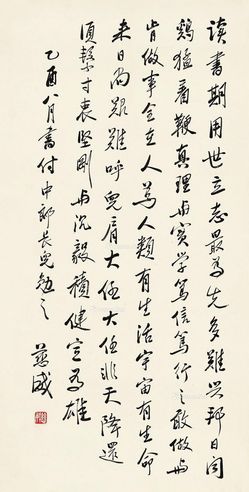 读书期用世立志最为先多难兴邦日闻
鸡猛着鞭真理与实学笃信笃行之敢做与
肯做事全立人为人类有生活宇宙有生命
来日尚艰难呼儿肩大任大任非天降还
须擎寸衷坚刚与沉毅积健定为雄
乙酉八月书付中郎长儿勉之